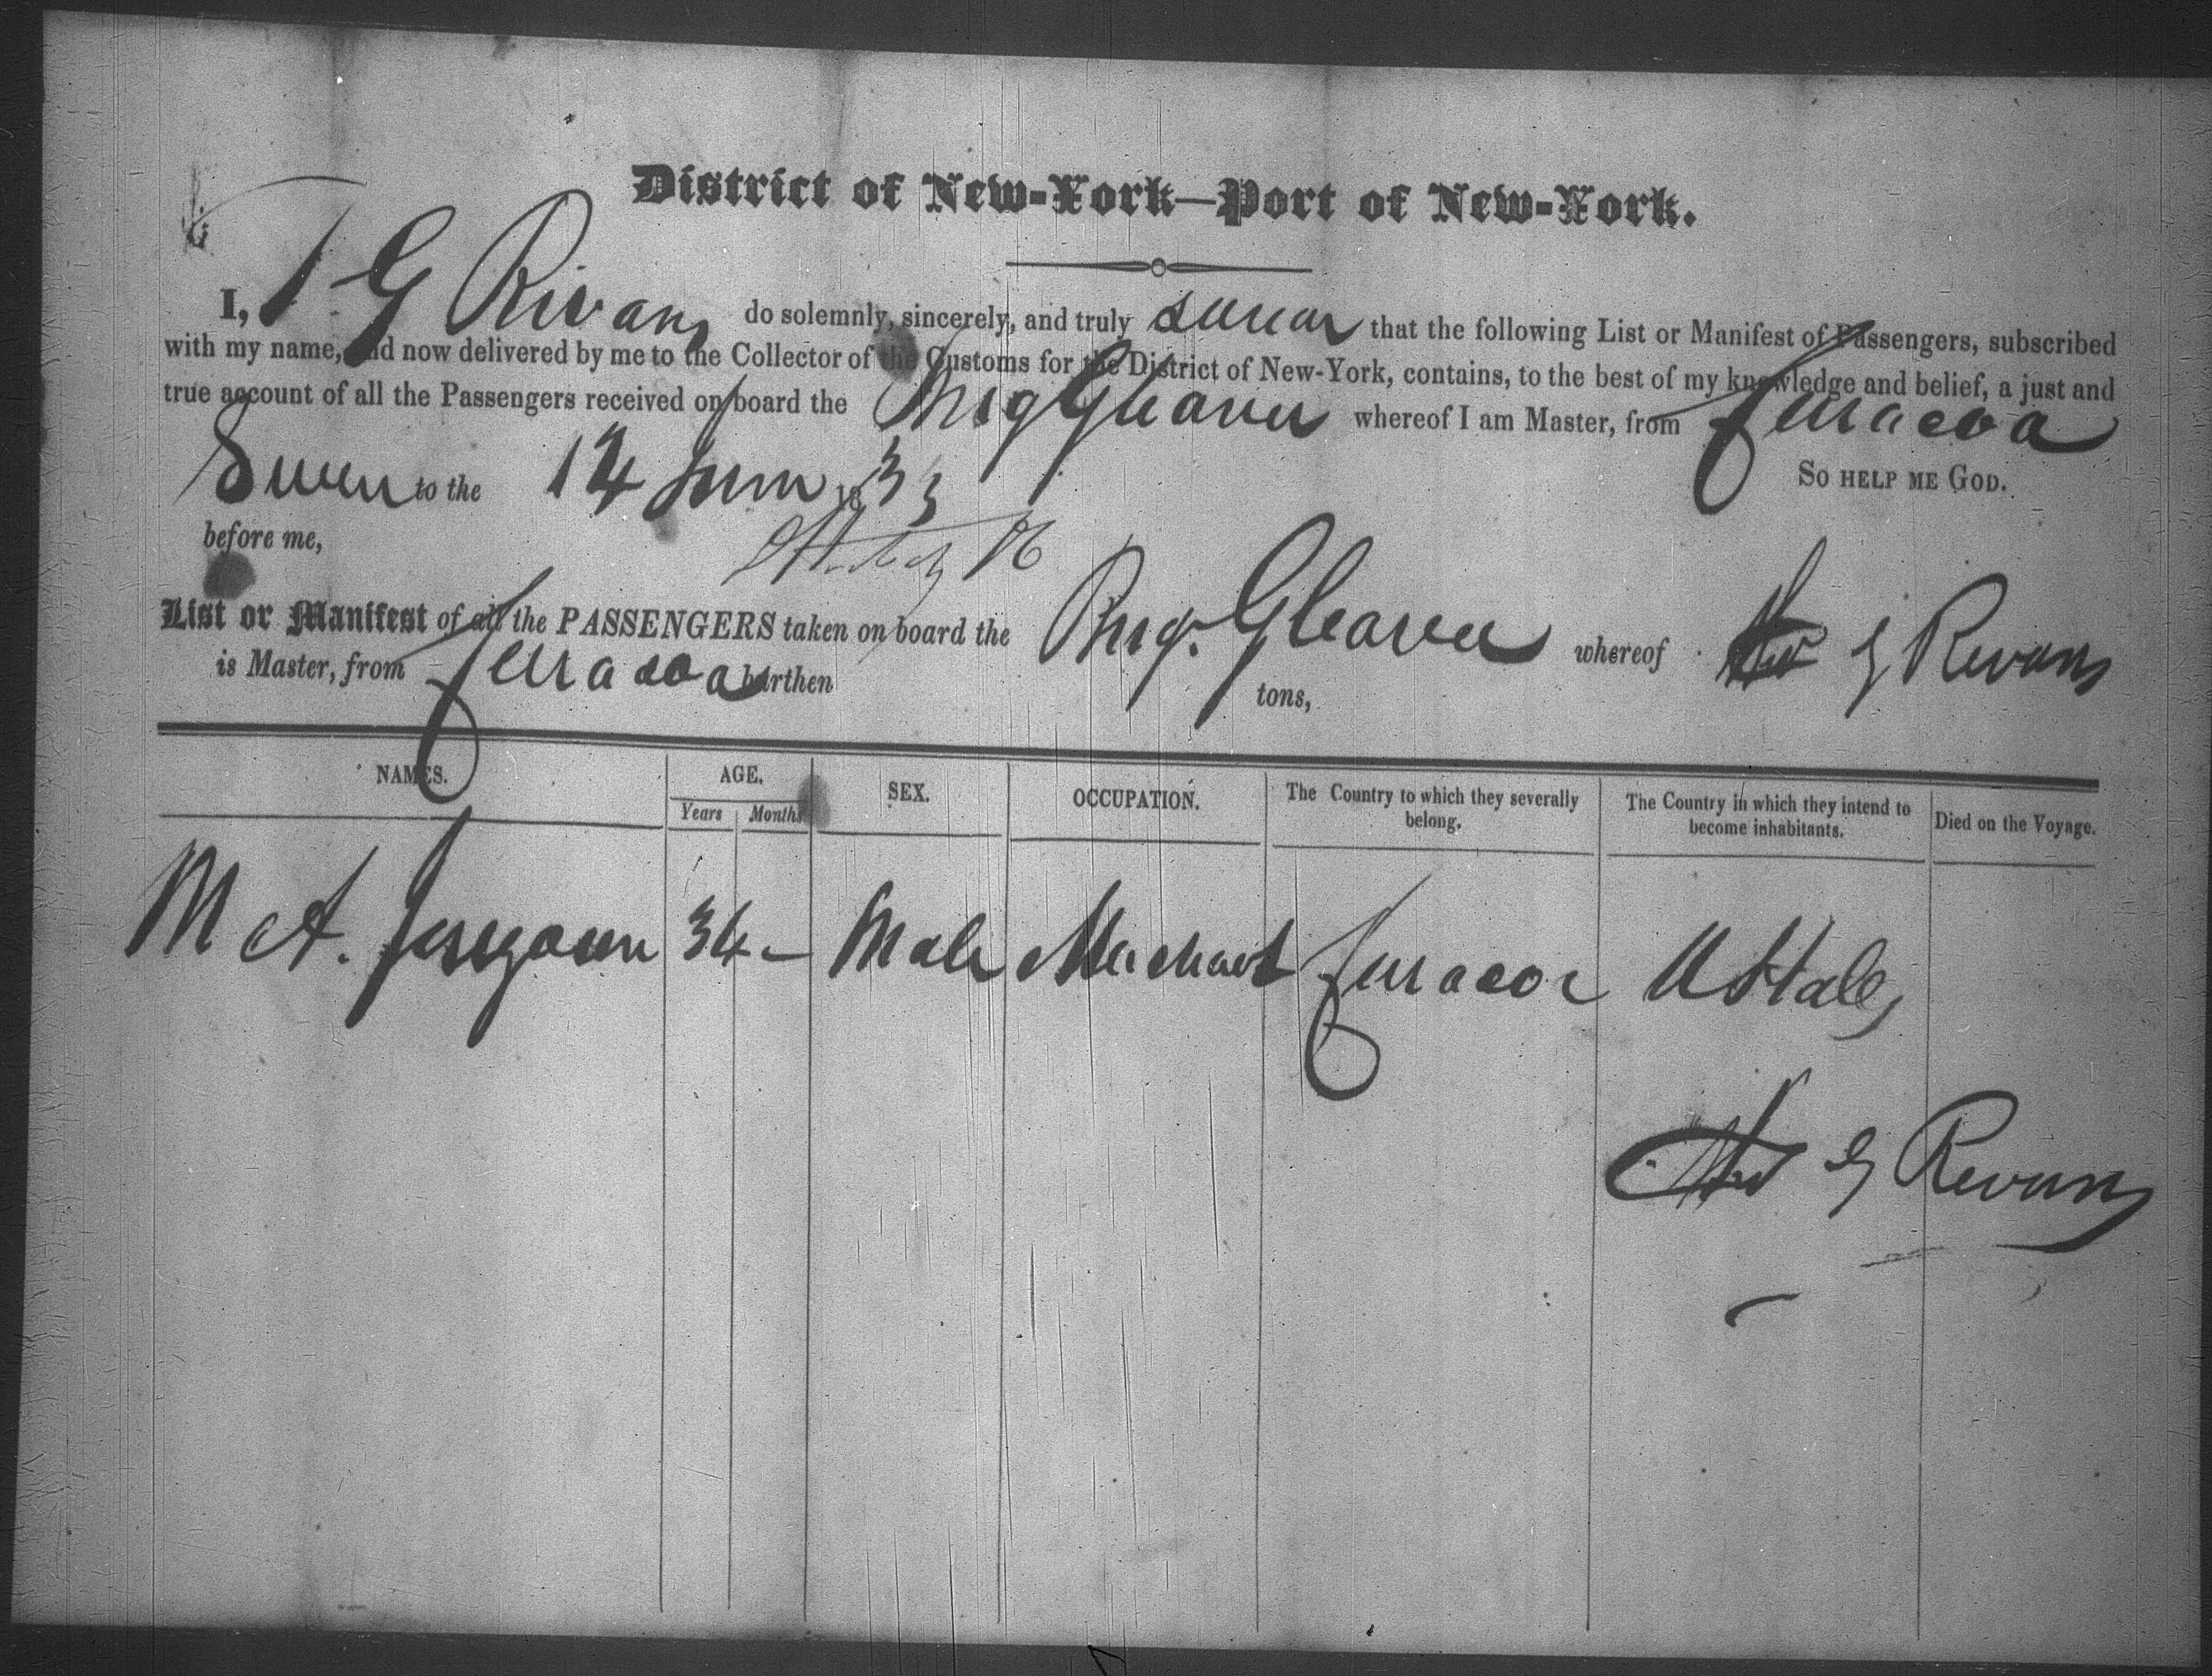 District of New-York—Port of New-York.
I, T G Rivans do solemnly, sincerely, and truly swear that the following List or Manifest of Passengers, subscribed
with my name, and now delivered by me to the Collector of the Customs for the District of New-York, contains, to the best of my knowledge and belief, a just and
true account of all the Passengers received on board the Brig Gleaner whereof I am Master, from Curacoa
So help me God.
Sworn to the 14 June 1833
before me,
List or Manifest of all the PASSENGERS taken on board the Brig. Gleaner whereof G Rivans
is Master, from Curacoa burthen tons,
NAMES. AGE. SEX. OCCUPATION. The Country to which they severally belong. The Country in which they intend to become inhabitants. Died on the Voyage.
Years Months
M A. 34 - Male Merchant Curacoa U States
G Rivans